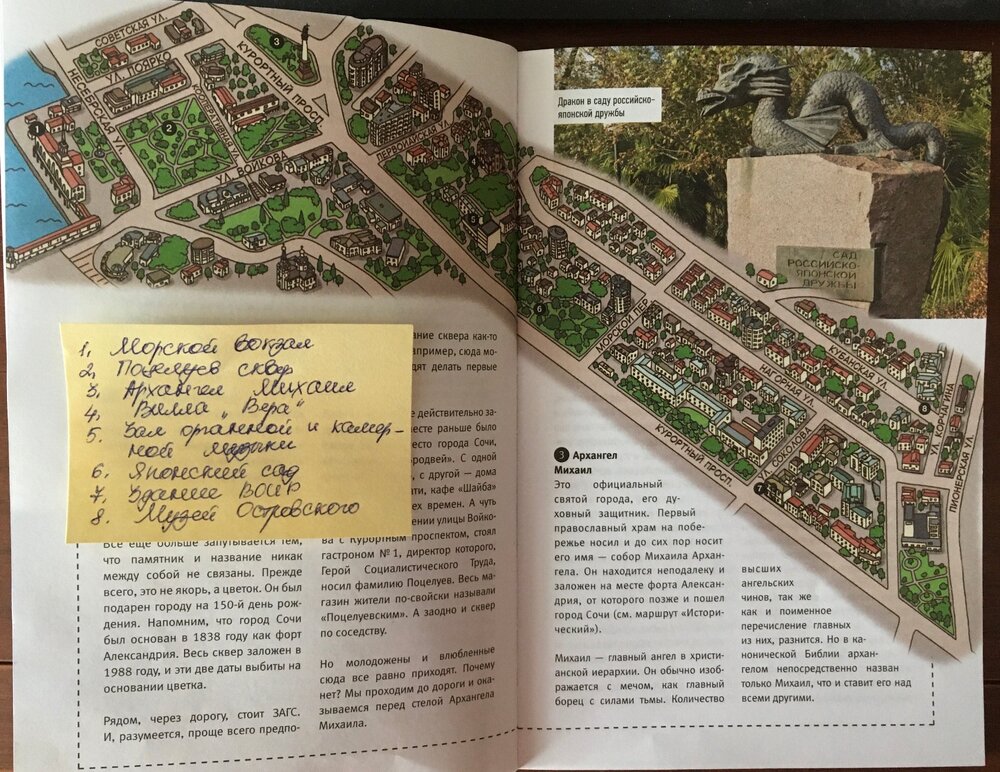 СОВЕТСКАЯ УЛ.
НЕСЕБРСКАЯ УЛ.
УЛ. ПОЯРКО
КУРОРТНЫЙ ПРОСП.
УЛ. ВОЙКОВА
1
2
3
5
1. Морской вокзал
2. Поцелуев сквер
3. Архангел Михаил
4. Вилла „Вера"
5. Зал органной и камер-
ной музыки
6. Японский сад
7. Здание ВОИР
8. Музей Островского
ание сквера как-то
апример, сюда мо-
дят делать первые
е действительно за-
месте раньше было
есто города Сочи,
бродвей». С одной
, с другой — дома
ати, кафе «Шайба»
ех времен. А чуть
ении улицы Войко-
Все еще больше запутывается тем,
что памятник и название никак
между собой не связаны. Прежде
всего, это не якорь, а цветок. Он был
подарен городу на 150-й день рож-
дения. Напомним, что город Сочи
был основан в 1838 году как форт
Александрия. Весь сквер заложен в
1988 году, и эти две даты выбиты на
основании цветка.
Рядом, через дорогу, стоит ЗАГС.
И, разумеется, проще всего предпо-
ва с Курортным проспектом, стоял
гастроном №1, директор которого,
Герой Социалистического Труда,
носил фамилию Поцелуев. Весь ма-
газин жители по-свойски называли
«Поцелуевским». А заодно и сквер
по соседству.
Но молодожены и влюбленные
сюда все равно приходят. Почему
нет? Мы проходим до дороги и ока-
зываемся перед стелой Архангела
Михаила.
Дракон в саду российско-
японской дружбы
САД
РОССИЙСКО-
ЯПОНСКОЙ
ДРУЖБЫ
6
МОРСКОЙ ПЕР.
КУБАНСКАЯ УЛ.
НАГОРНАЯ УЛ.
КУРОРТНЫЙ ПРОСП.
УЛ. СОКОЛОВА
УЛ. КОРЧАГИНА
ПИОНЕРСКАЯ УЛ.
7
8
3 Архангел
Михаил
Это официальный
святой города, его ду-
ховный защитник. Первый
православный храм на побе-
режье носил и до сих пор носит
его имя — собор Михаила Архан-
гела. Он находится неподалеку и
заложен на месте форта Алексан-
дрия, от которого позже и пошел
город Сочи (см. маршрут «Истори-
ческий»).
Михаил — главный ангел в христи-
анской иерархии. Он обычно изоб-
ражается с мечом, как главный
борец с силами тьмы. Количество
высших
ангельских
чинов, так же
как и поименное
перечисление главных
из них, разнится. Но в ка-
нонической Библии архан-
гелом непосредственно назван
только Михаил, что и ставит его над
всеми другими.